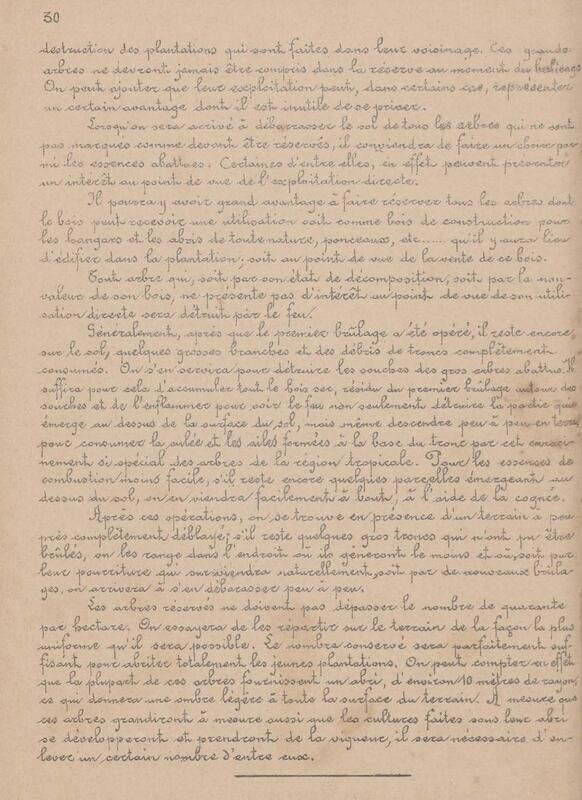 30
destruction des plantations qui sont faites dans leur voisinage. Ces grands
arbres ne devront jamais être compris dans la réserve au moment du
On peut ajouter que leur exploitation peut, dans certains cas, représenter
un certain avantage dont il est inutile de se priver.
Lorsqu'on sera arrivé à débarasser le sol de tous les arbres qui ne sont
pas marqués comme devant être réservés, il conviendra de faire un choix par-
mi les essences abattues. Certaines d'entre elles, en effet peuvent présenter
un intérêt au point de vue de l'exploitation directe.
Il pourra y avoir grand avantage à faire réserver tous les arbres dont
le bois peut recevoir une utilisation soit comme bois de construction pour
les hangars et les abris de toute nature, ponceaux, etc...... qu'il y aura lieu
d'édifier dans la plantation; soit au point de vue de la vente de ce bois.
Tout arbre qui, soit par son état de décomposition, soit par la non-
valeur de son bois, ne présente pas d'intérêt au point de vue de son utili-
sation directe sera détruit par le feu.
Généralement, après que le premier brûlage a été opéré, il reste encore,
sur le sol, quelques grosses branches et des débris de troncs complètement
consumés. On s'en servira pour détruire les souches des gros arbres abattus. Il
suffira pour cela d'accumuler tout le bois sec, résidu du premier brûlage autour des
souches et de l'enflammer pour voir le feu non seulement détruire la partie qui
émerge au dessus de la surface du sol, mais même descendre peu à peu en terre
pour consumer la culée et les ailes formées à la base du tronc par cet enraci-
nement si spécial des arbres de la région tropicale. Pour les essences de
combustion moins facile, s'il reste encore quelques parcelles émergeant au
dessus du sol, on en viendra facilement à bout, à l'aide de la cognée.
Après ces opérations, on se trouve en présence d'un terrain à peu
près complètement déblayé; s'il reste quelques gros troncs qui n'ont pu être
brûlés, on les range dans l'endroit où il gêneront le moins et où, soit par
leur pourriture qui surviendra naturellement, soit par de nouveaux brûla-
ges, on arrivera à s'en débarasser peu à peu.
Les arbres réservés ne doivent pas dépasser le nombre de quarante
par hectare. On essayera de les répartir sur le terrain de la façon la plus
uniforme qu'il sera possible. Le nombre conservé sera parfaitement suf-
fisant pour abriter totalement les jeunes plantations. On peut compter en effet
que la plupart de ces arbres fournissent un abri, d'environ 10 mètres de rayon,
ce qui donnera une ombre légère à toute la surface du terrain. A mesure que
ces arbres grandiront à mesure aussi que les cultures faites sous leur abri
se développeront et prendront de la vigueur, il sera nécessaire d'en-
lever un certain nombre d'entre eux.